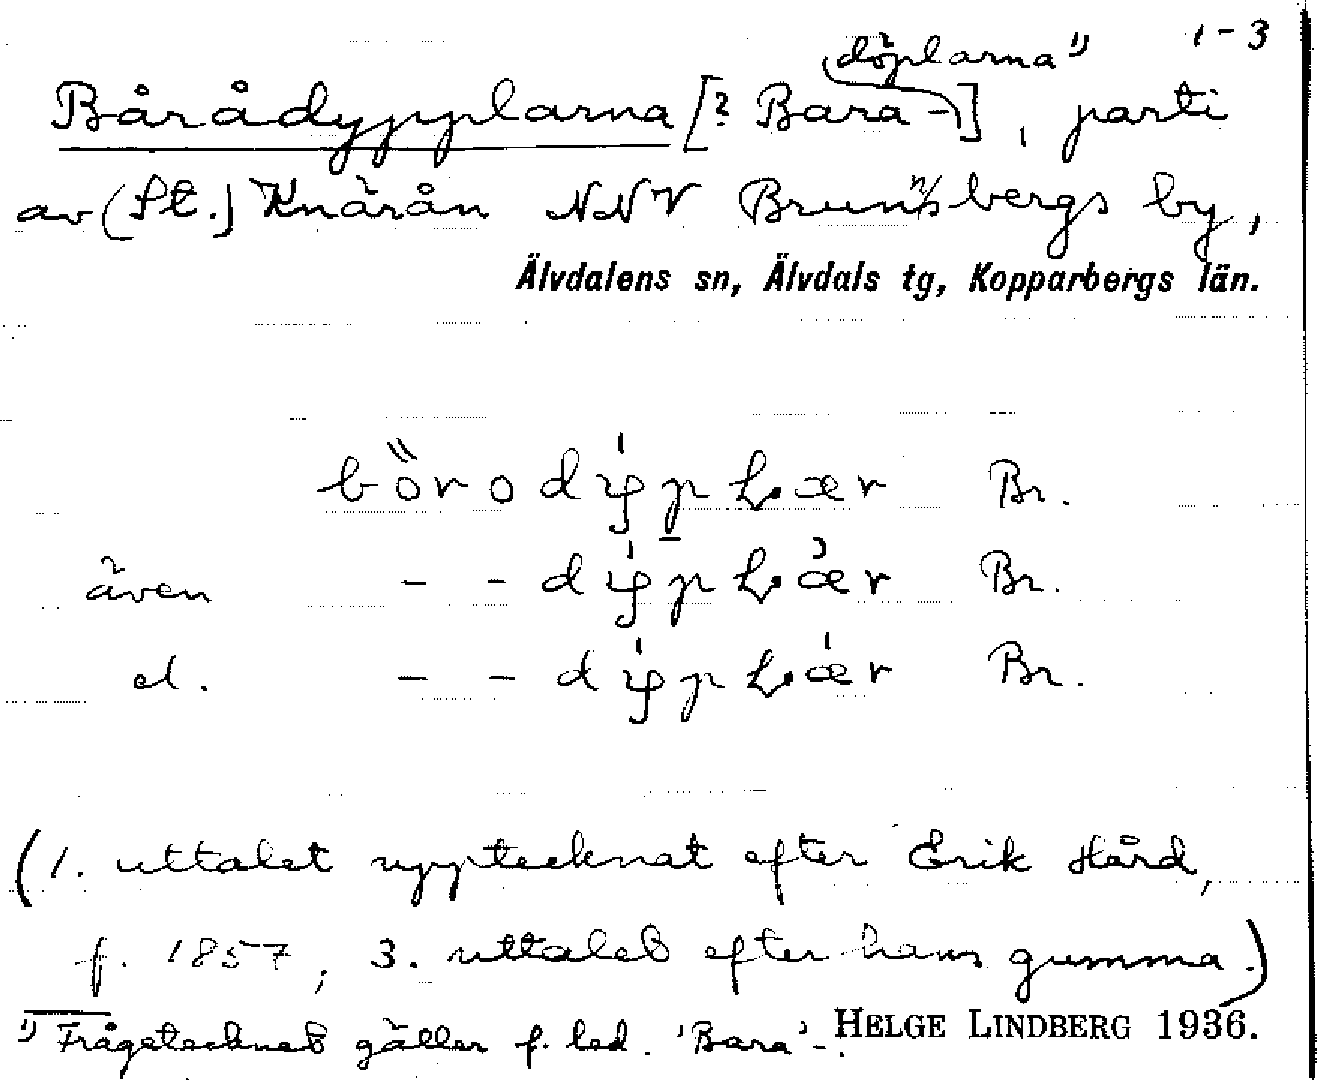 1-3
döplarna 1)
Bårådypplarna [? Bara-], parti
av (St.) Knärån NNV Brunnsbergs by,
Älvdalens sn, Älvdals tg, Kopparbergs län.
Br.
även Br.
el. Br.
(1. uttalet upptecknat efter Erik Hård,
f. 1857, 3. uttalet efter hans gumma.)
1) Frågetecknet gäller f. led. 'Bara'-.
HELGE LINDBERG 1936.